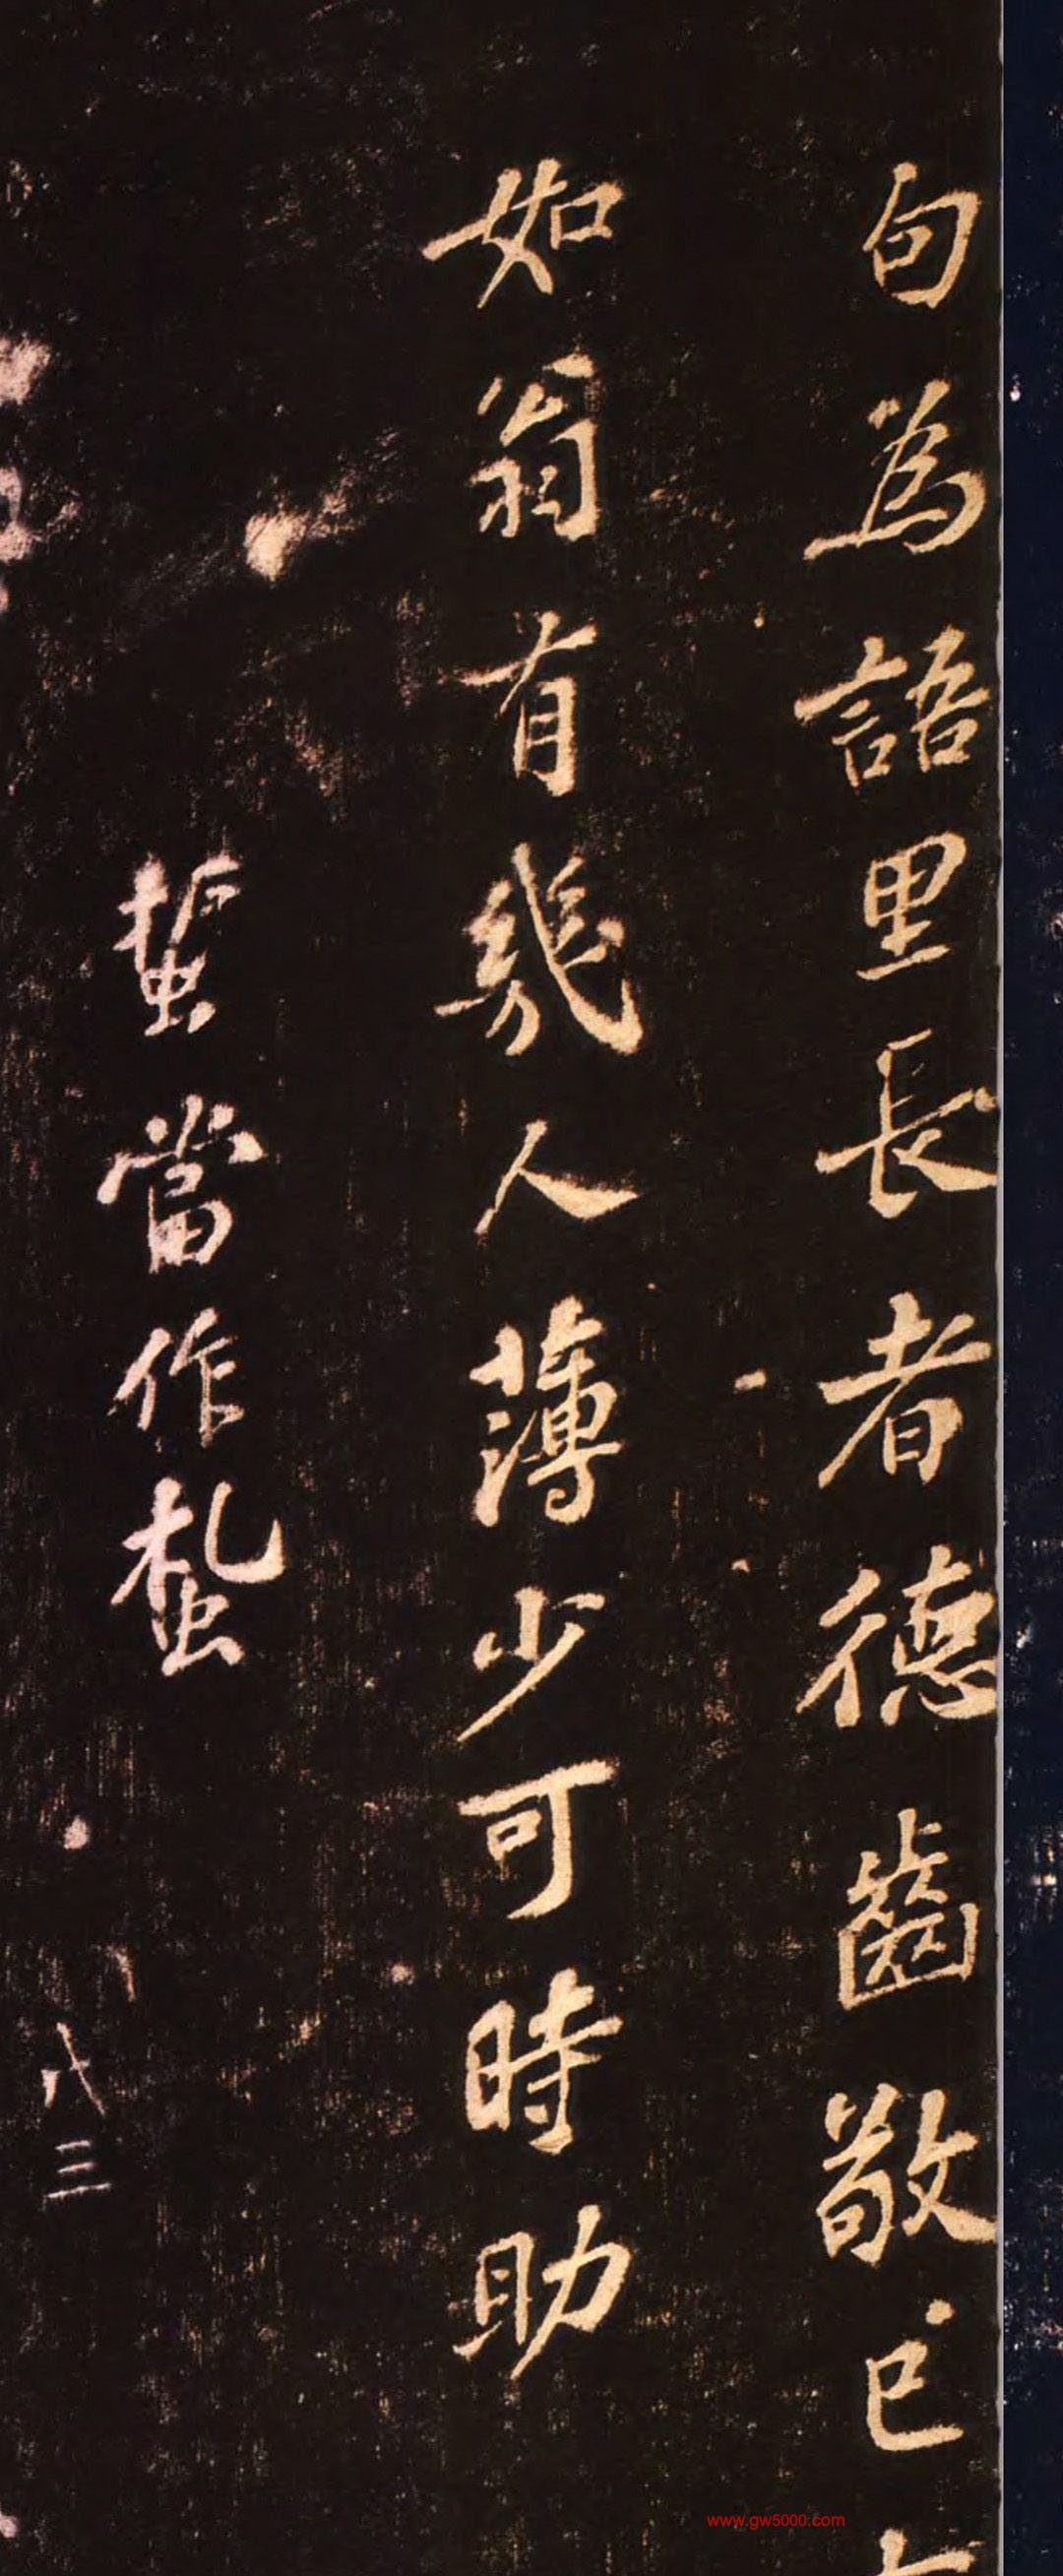 句為語里長者德齒敬已
如翁有幾人薄少可時助
蜇當作蚻
八三
www.gw5000.com